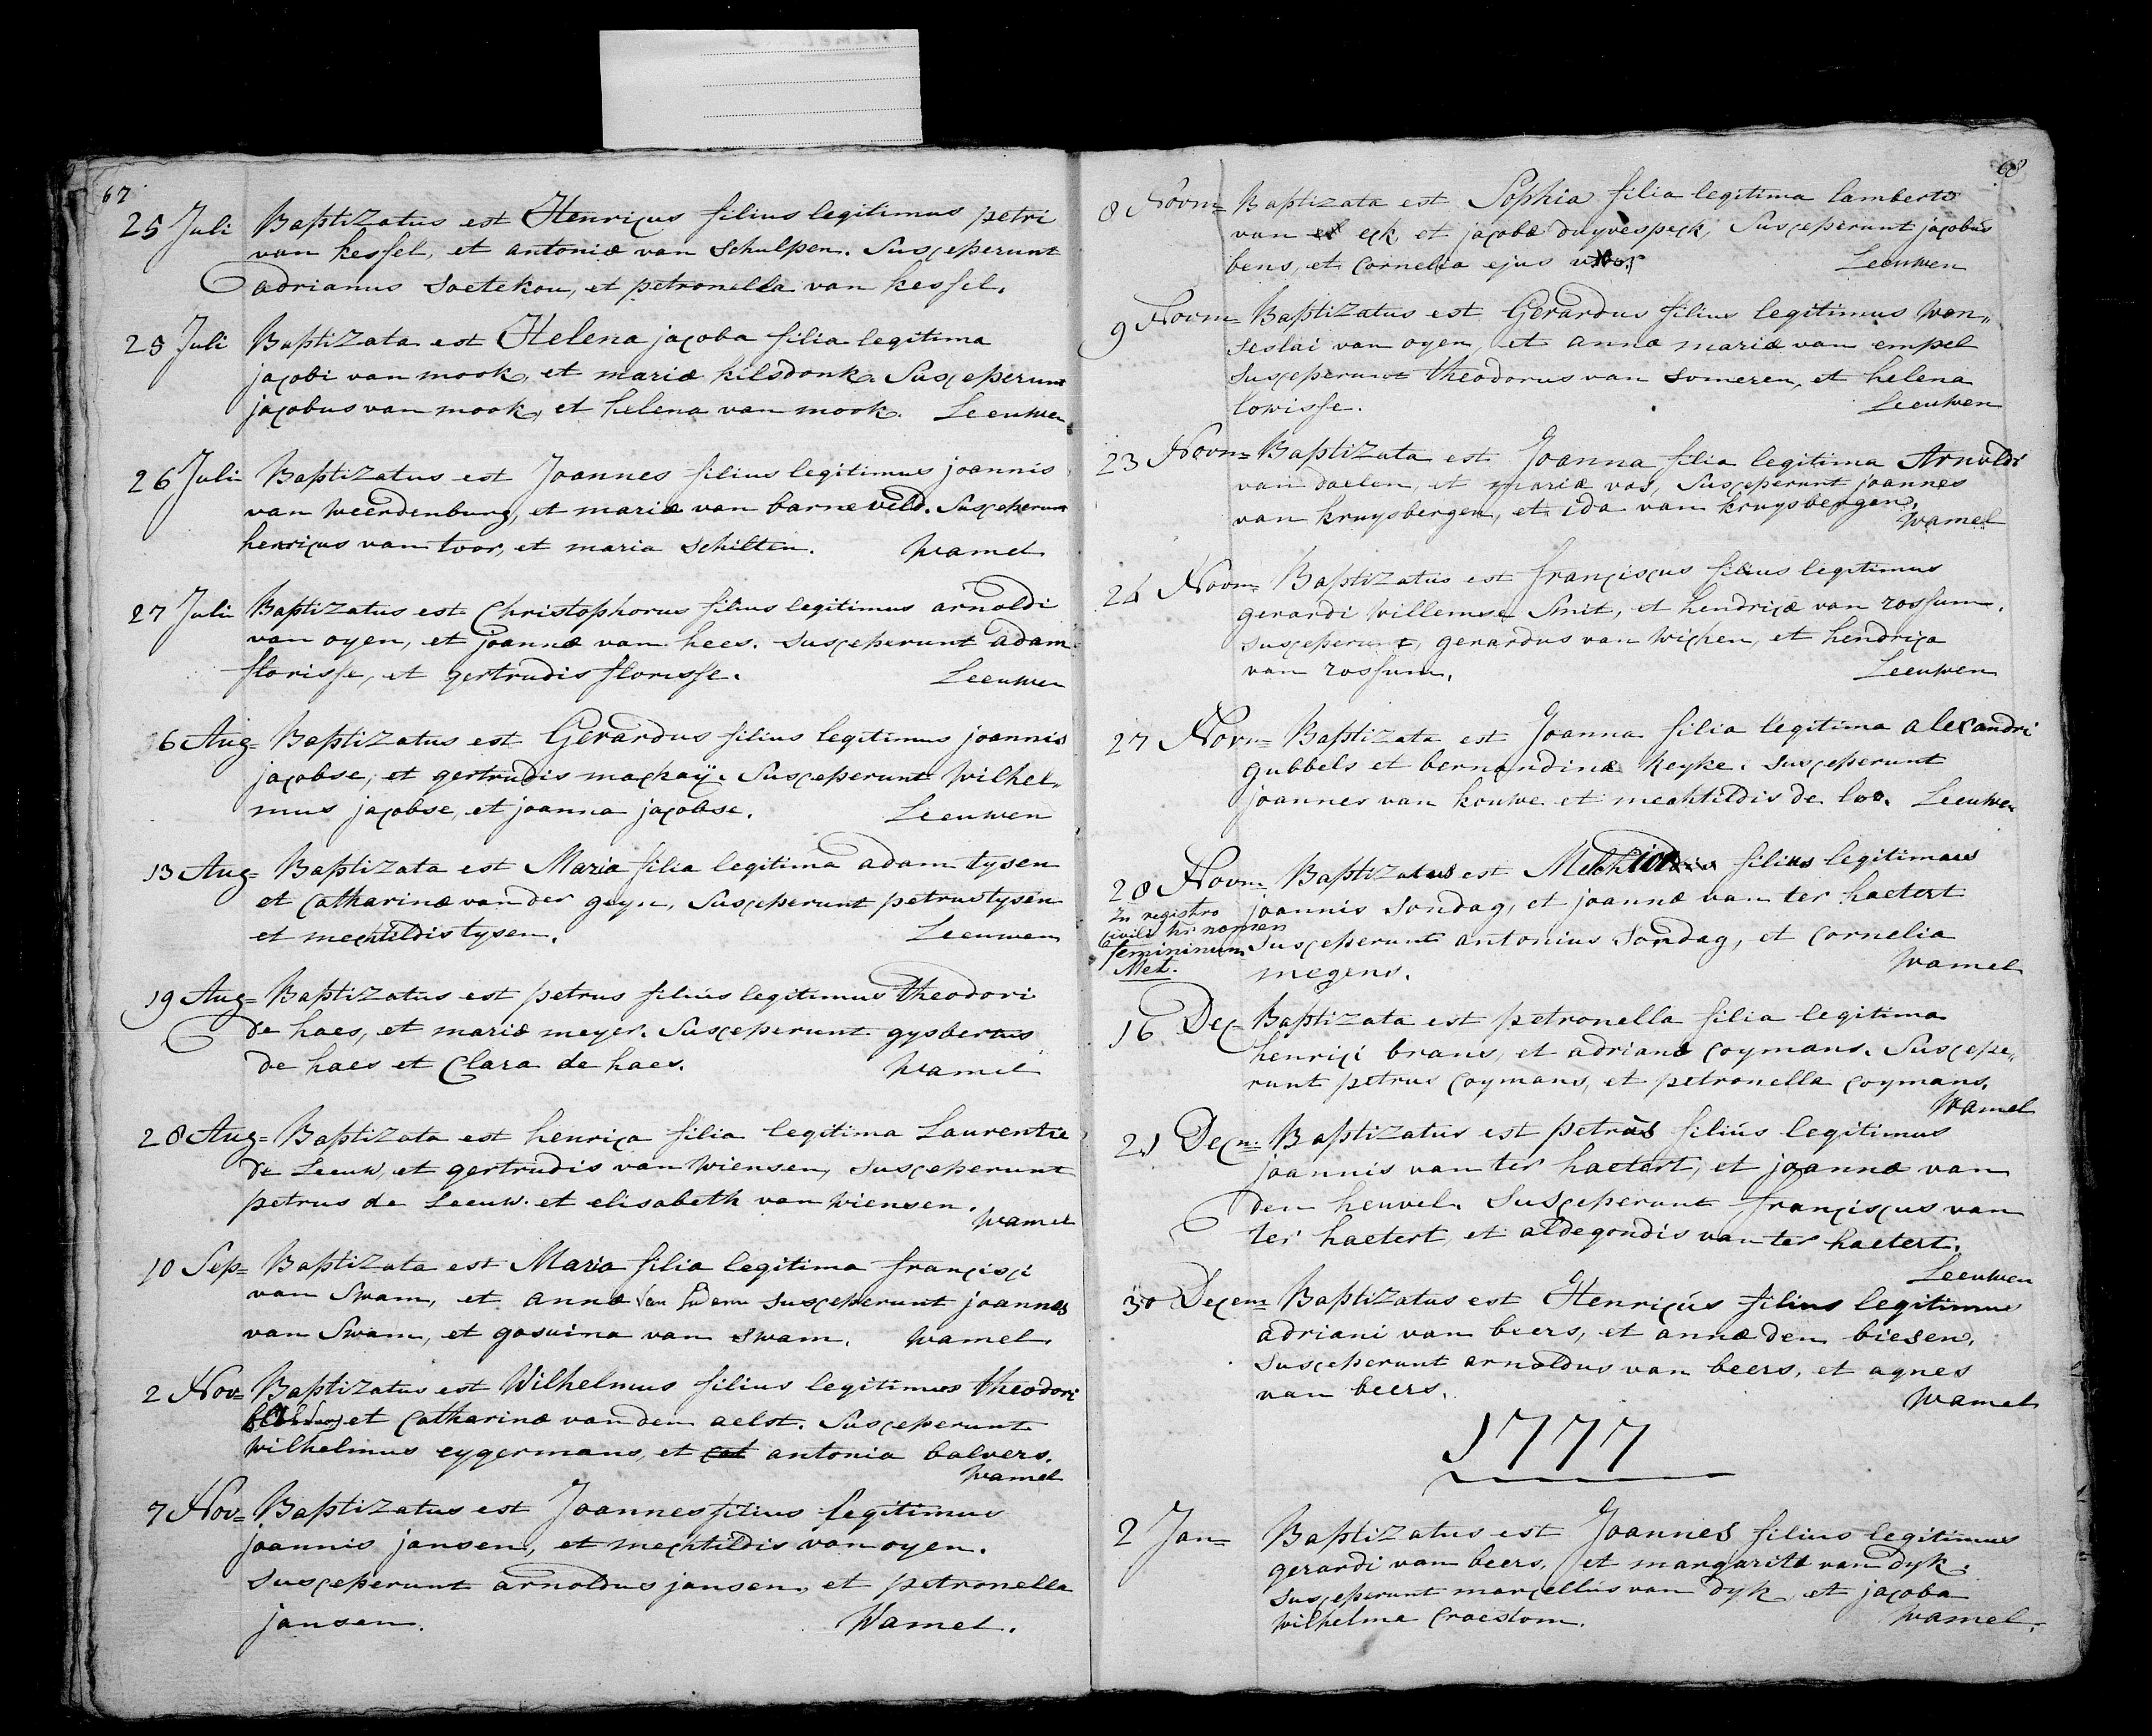 Wamel 1
67
25 Juli Baptizatus est Henricus filius legitimus petri
van kessel, et antoniæ van Schulpen. Susceperunt
adrianus Soetekou, et petronella van kessel.
25 Juli Baptizata est Helena jacoba filia legitima
jacobi van mook, et mariæ kilsdonk. Susceperunt
jacobus van mook, et helena van mook. Leeuwen
26 Juli Baptizatus est Joannes filius legitimus joannis
van weerdenburg, et mariæ van barneveld. Susceperunt
henricus van toor, et maria Schilten. Wamel
27 Juli Baptizatus est Christophorus filius legitimus arnoldi
van oyen, et joannæ van hees. Susceperunt adam
florisse, et gertrudis florisse. Leeuwen
6 Aug= Baptizatus est Gerardus filius legitimus joannis
jacobse, et gertrudis mackaÿ. Susceperunt Wilhel„
mus jacobse, et joanna jacobse. Leeuwen
13 Aug= Baptizata est Maria filia legitima adam tysen
et Catharinæ van der geyn, Susceperunt petrus tysen
et mechtildis tysen. Leeuwen
19 Aug= Baptizatus est petrus filius legitimus theodori
de haes, et mariæ meyer. Susceperunt gysbertus
de haes et Clara de haes. Wamel
28 Aug= Baptizata est henrica filia legitima Laurentii
de Leeuw, et gertrudis van wiensen, Susceperunt
petrus de Leeuw. et elisabeth van wiensen.
Wamel
10 Sep= Baptizata est Maria filia legitima francisci
van Swam, et annæ van susceperunt joannes
van Swam, et gosuina van Swam. Wamel
2 Nov= Baptizatus est Wilhelmus filius legitimus theodori
et Catharinæ van den aelst. Susceperunt
Wilhelmus eygermans, et cat antonia balvers.
Wamel
7 Nov= Baptizatus est Joannes filius legitimus
joannis jansen, et mechtildis van oyen.
Susceperunt arnoldus jansen, et petronella
jansen. Wamel.
68
8 Novm= Baptizata est Sophia filia legitima lamberti
van eck, et jacobæ duyvespeck, Susceperunt jacobus
bens, et Cornelia ejus uxor. Leeuwen
9 Novm= Baptizatus est Gerardus filius legitimus Wen„
seslai van oyen, et anna mariæ van empel
Susceperunt theodorus van Someren, et helena
lowisse. Leeuwen
23 Novm= Baptizata est Joanna filia legitima Arnoldi
van daelen, et mariæ vos, Susceperunt joannes
van kruysbergen, et ida van kruysbergen.
Wamel
24 Novm= Baptizatus est franciscus filius legitimus
gerardi Willemse Smit, et hendricæ van rossum.
Susceperunt, gerardus van wichen, et hendrica
van rossum. Leeuwen
27 Novm= Baptizata est Joanna filia legitima alexandri
gubbels et bernandinæ Keyke. Susceperunt
joannes van kouwe et mechtildis de loo. Leeuwen
28 Novm= Baptizatus est Melchior filius legitimus
In registro joannis Sondag, et joannæ van ter haetert
civili hr nomen
femininum Susceperunt antonius Sondag, et Cornelia
Met. megens. Wamel
16 Dec= Baptizata est petronella filia legitima
henrici brans, et adrianæ coymans. Suscepe„
runt petrus coymans, et petronella coymans.
Wamel
21 Decm= Baptizatus est petrus filius legitimus
joannis van ter haetert, et joannæ van
den heuvel. Susceperunt franciscus van
ter haetert, et aldegondis van ter haetert.
Leeuwen
30 Decem= Baptizatus est Henricus filius legitimus
adriani van beers, et annæ den biesen.
Susceperunt arnoldus van beers, et agnes
van beers. Wamel
1777
2 Jan= Baptizatus est Joannes filius legitimus
gerardi van beers, et margaritæ van dyk.
Susceperunt marcellus van dyk, et jacoba
Wilhelma Craestom. Wamel.